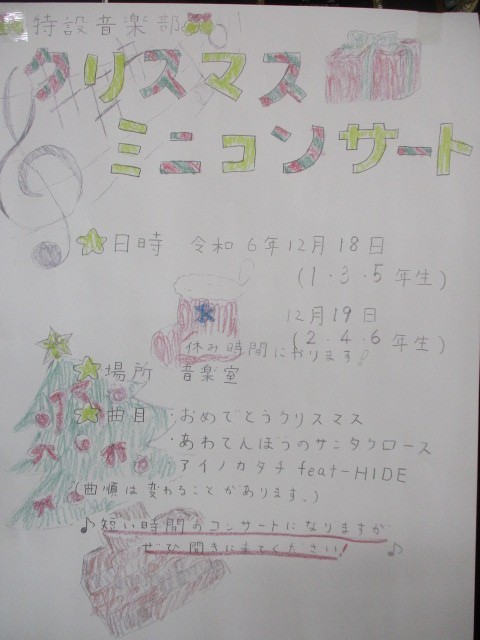 特設音楽部
クリスマス
ミニコンサート
日時 令和6年12月18日
(1・3・5年生)
12月19日
(2・4・6年生)
休み時間におります!
場所 音楽室
曲目 ・おめでとうクリスマス
・あわてんぼうのサンタクロース
・アイノカタチfeat-HIDE
(曲順は変わることがあります。)
♪短い時間のコンサートになりますが
ぜひ聞きに来てください! ♪